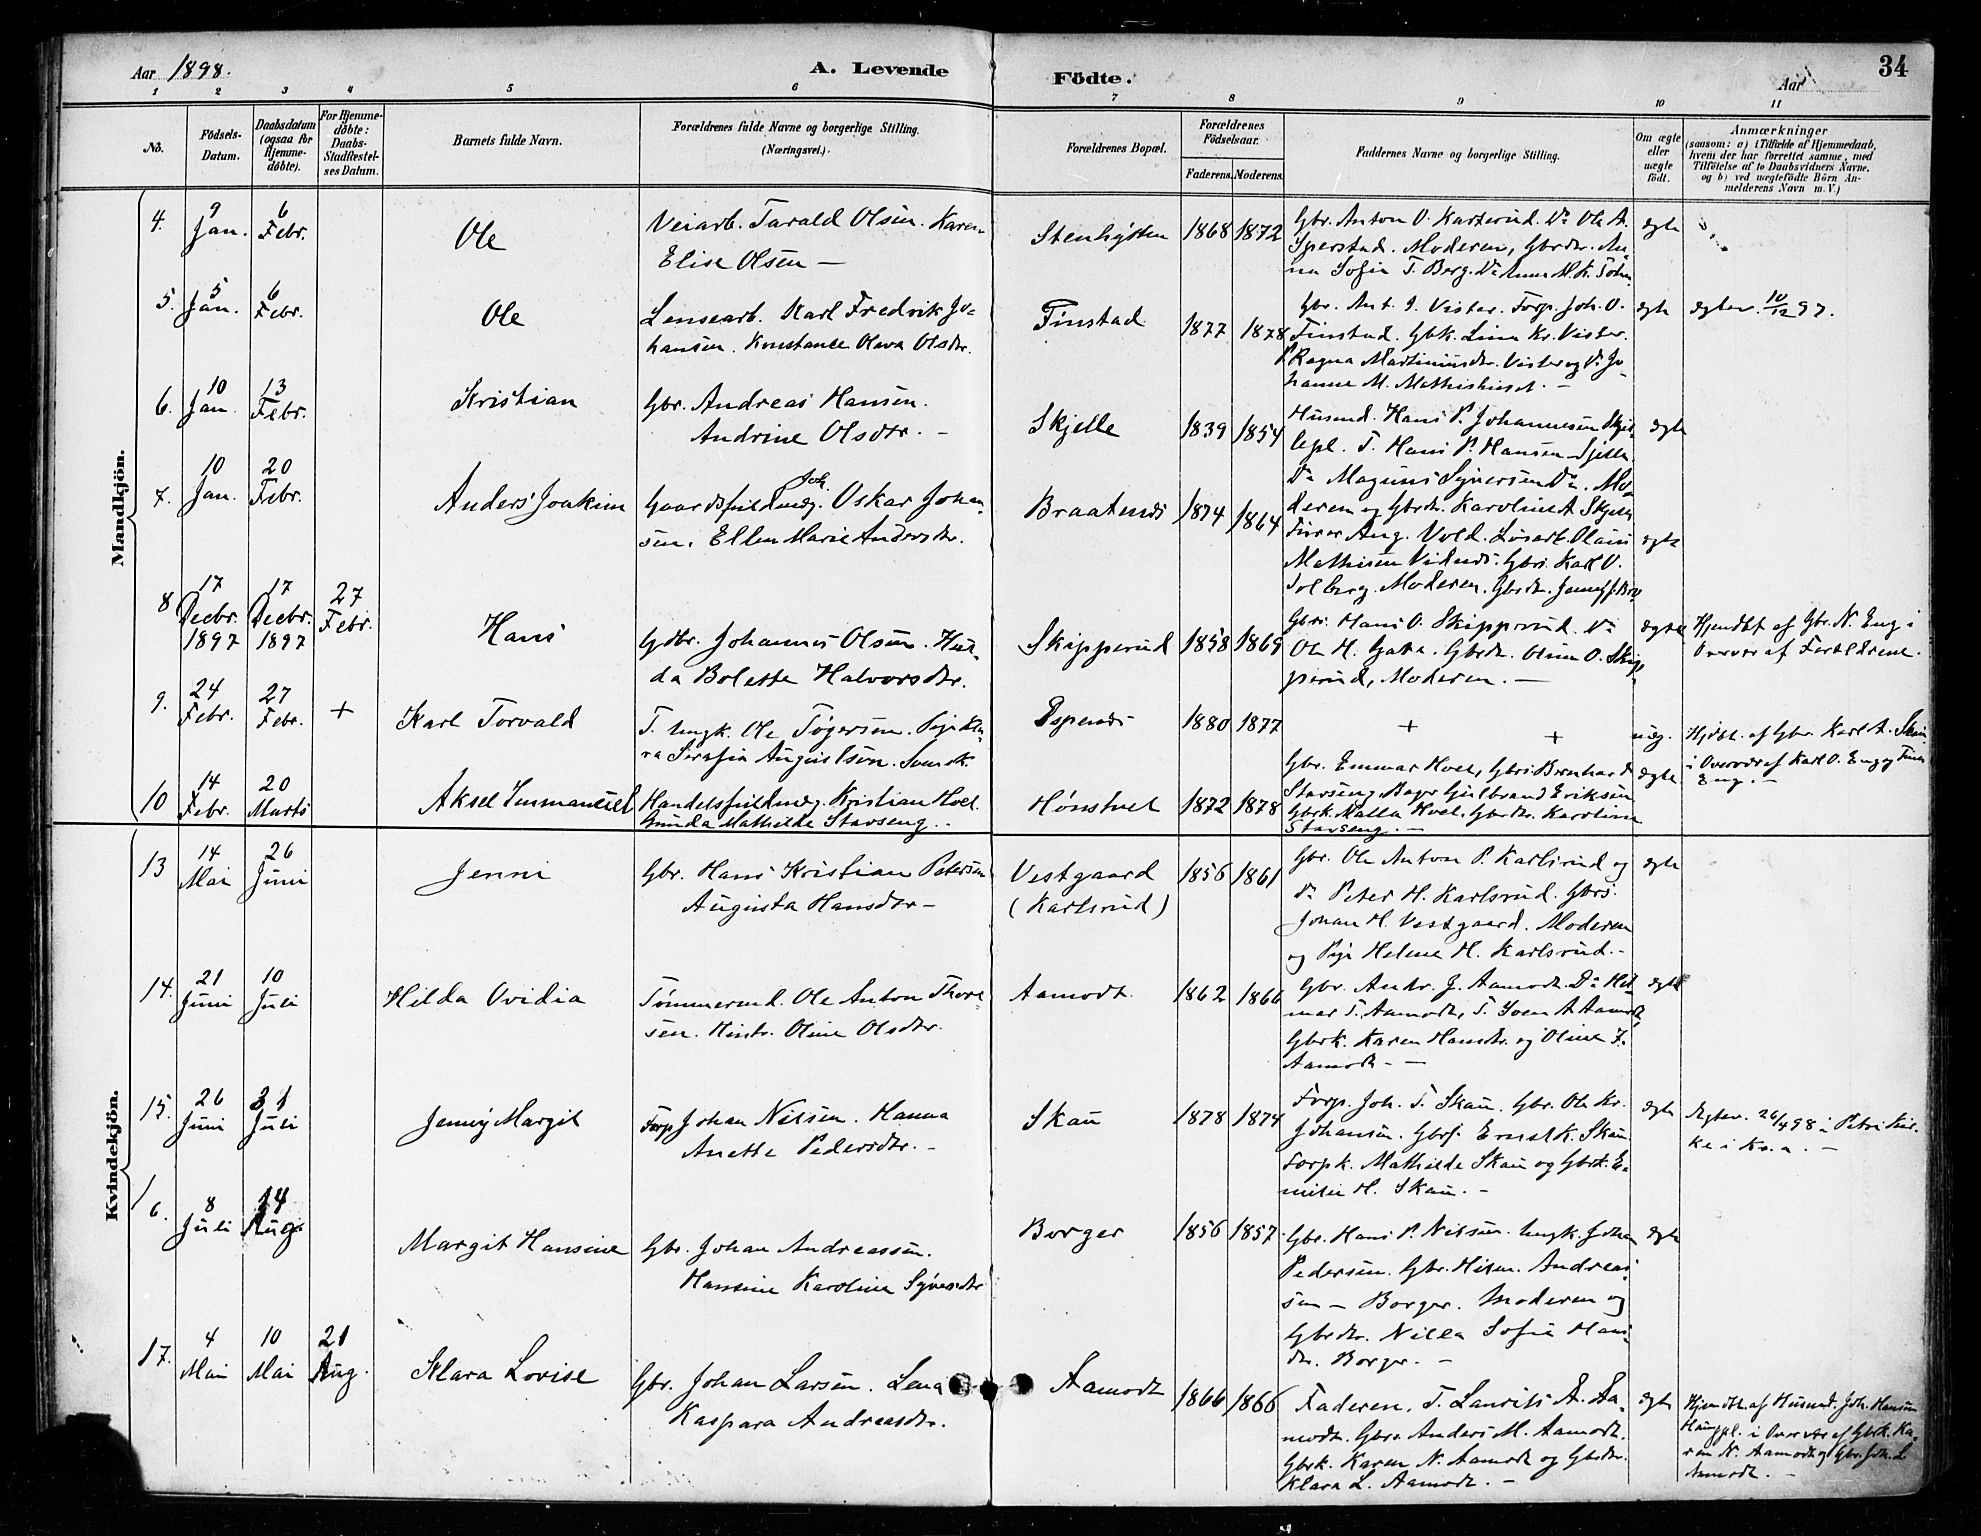 Aar 1898.
A. Levende
Födte.
Aar
34
1 2 3 4 5 6 7 8 9 10 11
No.
Födsels-
Datum.
Daabsdatum
(ogsaa för
Hjemme-
döbte).
For Hjemme-
döbte:
Daabs-
Stadfæstel-
ses Datum.
Barnets fulde Navn.
Forældrenes fulde Navne og borgerlige Stilling.
(Næringsvei.)
Forældrenes Bopæl.
Forældrenes
Födselsaar.
Faderens. Moderens.
Faddernes Navne og borgerlige Stilling.
Om ægte
eller
uægte
födt.
Anmærkninger
(saasom: a) i Tilfælde af Hjemmedaab,
hvem der har forrettet samme, med
Tilföielse af to Daabsvidners Navne.
og b) ved uægtefödte Börn An-
melderens Navn m. V.)
Mandkjön.
4. 9 Jan. 6 Febr. Ole
Veiarb. Tarald Olsen. Karen
Elise Olsen —
1868 1872
Gbr. Anton O. Karterud. Do Ole A.
Sperstad. Moderen, Gbrdtr. An-
na Sofie T. Berg. Do
ægte
5. 5 Jan. 6 Febr. Ole
Lensearb. Karl Fredrik Jo-
hansen. Konstance Olava Olsdtr.
Finstad 1877 1878
Gbr. Ant. J. Vister. Forp. Joh. O.
Finstad. Gbk. Lina Kr. Vister.
P. Ragna Martiniusdtr. Vister og P. Jo-
hanne M. Mathishuset. —
ægte
ægtev. 10/12 97.
6. 10 Jan. 13 Febr. Kristian
Gbr. Andreas Hansen.
Andrine Olsdtr. —
Skjelle 1839 1854
Husmd. Hans P. Johannesen Skjel-
lepl. T. Hans P. Hansen Sjelle.
Do Magnus Syversen Do. Mo-
deren og Gbrdtr. Karoline A Skjelle
ægte
7. 10 Jan. 20 Febr. Anders Joakim
Joh.
Gaardsfuldmæg. Oskar Johan-
sen. Ellen Marie Andersdtr.
Braatenes 1874 1864
Aug. Vold. Løsarb. Olaus
Mathisen Gbrs. Karl O.
Solberg. Moderen. Gbrdtr.
ægte
8 17 Decbr. 1897 17 Decbr. 1897 27 Febr. Hans
Gdbr. Johannes Olsen. Hul-
da Bolette Halvorsdtr.
Skipperud 1858 1869
Gbrs. Hans O. Skipperud. Do
Ole H. Gata. Gbrdtr. Oline O. Skip-
perud, Moderen. —
ægte
Hjemdbt af Gbr. N. Eng i
Overvær af Forældrene.
9. 24 Febr. 27 Febr. + Karl Torvald
T. Ungk. Ole Tøgersen. Pige Kla-
ra Serafia Augustson. Svensk.
Espenes 1880 1877
+ +
uæg.
Hjdbt. af Gbr. Karl A.
i Overvær af Karl O. Eng og
Eng. —
10 14 Febr. 20 Marts Aksel Immanuel
Handelsfuldmæg. Kristian Hoel.
Gunda Mathilde Stavseng. —
Hønstvet 1872 1878
Gbr. Emmar Hoel, Gbrs Bernhard
Stavseng Bager Gulbrand Eriksen
Gbrk. Kalla Hoel. Gbrdtr. Karoline
Stavseng. —
ægte
Kvindekjön.
13 14 Mai 26 Juni Jenni
Gbr. Hans Kristian Petersen
Augusta Hansdtr —
Vestgaard
(Karlsrud)
1856 1861
Gbr. Ole Anton P. Karlsrud og
Do Peter H. Karlsrud. Gbrs.
Johan H. Vestgaard. Moderen
og Pige Helene H. Karlsrud. —
ægte
14. 21 Juni 10 Juli Hilda Ovidia
Tømmermd. Ole Anton Thore-
sen. Hustr. Oline Olsdtr.
Aamodt 1862 1866
Gbr. Andr. J. Aamodt. Do Hel-
mer T. Aamodt, T. Sven A Aamodt,
Gbrk. Karen Hansdtr. og Oline J.
Aamodt. —
ægte
15. 26 Juni 31 Juli Jenny Margit
Forp. Johan Nilsen. Hanna
Anette Pedersdtr. —
Skau 1878 1874
Forp. Joh. T. Skau. Gbr. Ole Kr.
Johansen. Gbrs. Ernst K. Skau
Forpk. Mathilde Skau og Gbrk. E-
milie H. Skau. —
ægte
Ægtev. 26/4 98 i Petri Kir-
ke i Kr.a. —
16. 8 Juli 14 Aug. Margit Hansine
Gbr. Johan Andreassen.
Hansine Karoline Syversdtr
Borger 1856 1857
Gbr. Hans P. Nilsen. Ungk. Johan
Pedersen. Gbr. Hilm. Andreas-
sen — Borger. Moderen og
Gbrdtr. Nilla Sofie Hans-
dtr. Borger. —
ægte
17. 4 Mai 10 Mai 21 Aug. Klara Lovise
Gbr. Johan Larsen. Lena
Kaspara Andreasdtr.
Aamodt 1866 1866
Faderen, T. Laurits A. Aa-
modt. Gbrs Anders M. Aamodt.
Gbrk. Karen N. Aamodt og Gbrdtr.
Klara L. Aamodt. —
ægte
Hjemdbt. af Husmd. Joh. Hansen
i Overvær af Gbrk. Ka-
ren N. Aamodt og Gbr. Joh. L
Aamodt. —